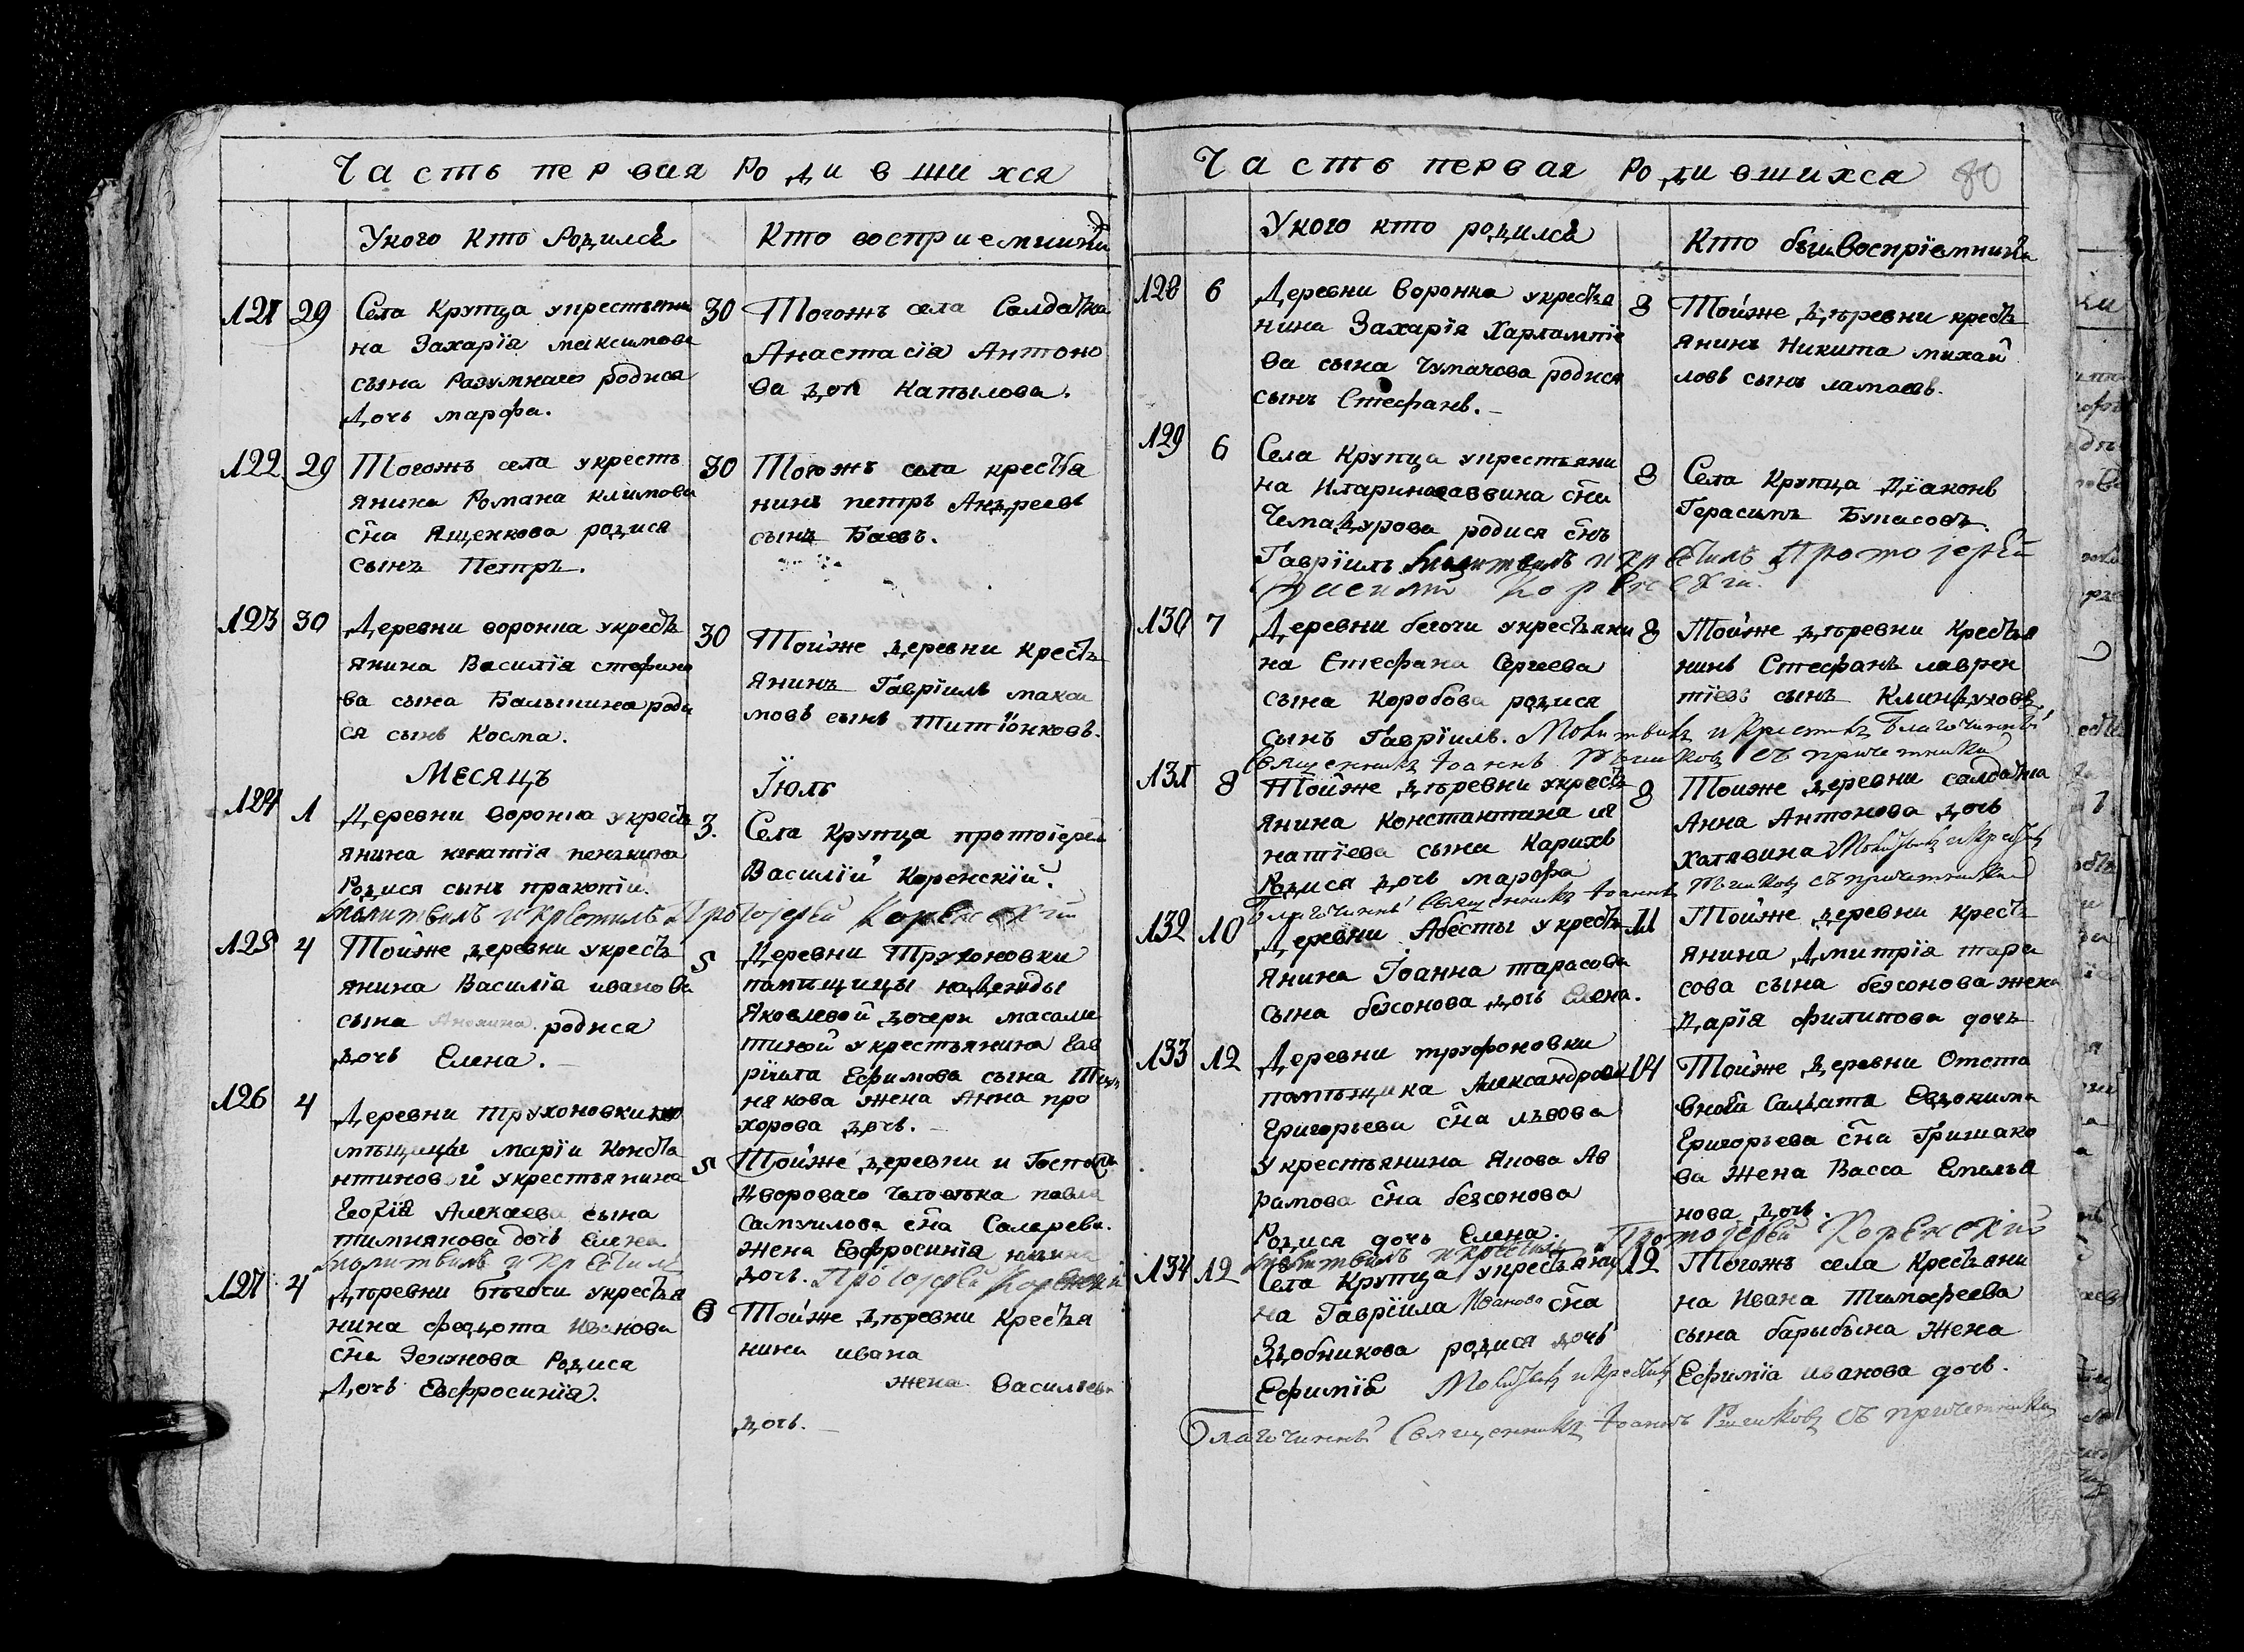 Часть первая Родившихся
Укого Кто Родился
Кто восприемники
121 29 Села Крупца укрестьяни
на Захарїя максимова
сына Разумнаго родися
Дочь марфа.
30 Тогожъ села Салдатка
Анастасїя Антоно
ва доч Капылова.
122 29 Тогожъ села укресть
янина Романа климова
сна Ященкова родися
сынъ Петръ.
30 Тогожъ села крестья
нинъ петръ Андреевъ
сынъ Баевъ.
123 30 Деревни воронка укресть
янина Василїя стефано
ва сына роди
ся сынъ Косма.
30 Тойже деревни кресть
янинъ Гаврїилъ макси
мовъ сынъ Титюнковъ.
Месяцъ Їюль
124 1 Деревни воронка укресть
янина
Родися сынъ пракопїи.
молитвилъ икрестилъ Протоїерей Коренскїй
3. Села Крупца протоїерей
Василїй Коренскїй.
125 4 Тойже деревни укресть
янина Василїя иванова
сына родися
дочь Елена.
5 Деревни Трухоновки
помещицы надежды
Яковлевой дочери
укрестьянина Гав
рїила Ефимова сына
някова жена Анна про
хорова дочь.
126 4 Деревни трухоновки по
мѣщицы марїи Конста
нтиновой укрестьянина
Георгїя Алексеева сына
тимнякова дочь Елена
молитвилъ и крестилъ
5 Тойже деревни и Господ
Двороваго человека павла
Самуилова сна
жена Евфросинїя
дочь. Протоїерей Коренский
127 4 Дѣревни бѣгочи укрестья
нина федота Иванова
сна Родися
Дочь Евфросинїя.
6 Тойже дѣревни Крестья
нина ивана
жена Васильева
дочь.
Часть первая Родившихся 80
Укого кто родился
Кто были Воспрїемники
128 6 Деревни Воронка укрестья
нина Захарїя Харлампїе
ва сына Чумачова родися
сынъ Стефанъ.
8 Тойже дѣревни кресть
янинъ Никита михай
ловъ сынъ
129 6 Села Крупца укрестьяни
на Иларина саввина сна
Чемадурова родися снъ
Гаврїилъ. молитвилъ и крестилъ Протоїерей
Василий Коренскїй.
8 Села Крупца Дїаконъ
Герасимъ
130 7 Деревни бегочи укрестьяни
на Стефана Сергеева
сына Коробова родися
сынъ Гаврїилъ. Молитвилъ и Крестилъ Благочинный
Священникъ Іоаннъ съ причетники
8 Тойже дѣревни Крестья
нинъ Стефанъ лаврен
тїевъ сынъ
131 8 Тойже дѣревни укресть
янина Константина иг
натїева сына
Родися дочь марфа
Благочинный Священникъ Іоаннъ съ причетники
8 Тойже деревни салдатка
Анна Антонова дочь
Молитвилъ и Крестилъ
132 10 Деревни Абесты укресть
янина Їоанна тарасова
сына безсонова дочь Елена.
11 Тойже деревни кресть
янина Дмитрїя тара
сова сына безсонова жена
Дарїя филипова дочь
133 12 Деревни труфоновки
помѣщика Александрова
Григорьева сна львова
Укрестьянина Якова Ав
рамова сна безсонова
Родися дочь Елена.
молитвилъ и крестилъ Протоїерей Коренскїй
14 Тойже Деревни Отста
внова Салдата Евдокима
Григорьева сна Гришако
ва жена Васса Емелья
нова дочь.
134 12 Села Крупца укрестьяни
на Гаврїила Иванова сна
Здобникова родися дочь
Ефимїя Молитвилъ и Крестилъ
Благочинный Священникъ Іоаннъ съ причетники
12 Тогожъ села Крестьяни
на Ивана Тимофеева
сына барыбына жена
Ефимїа иванова дочь.